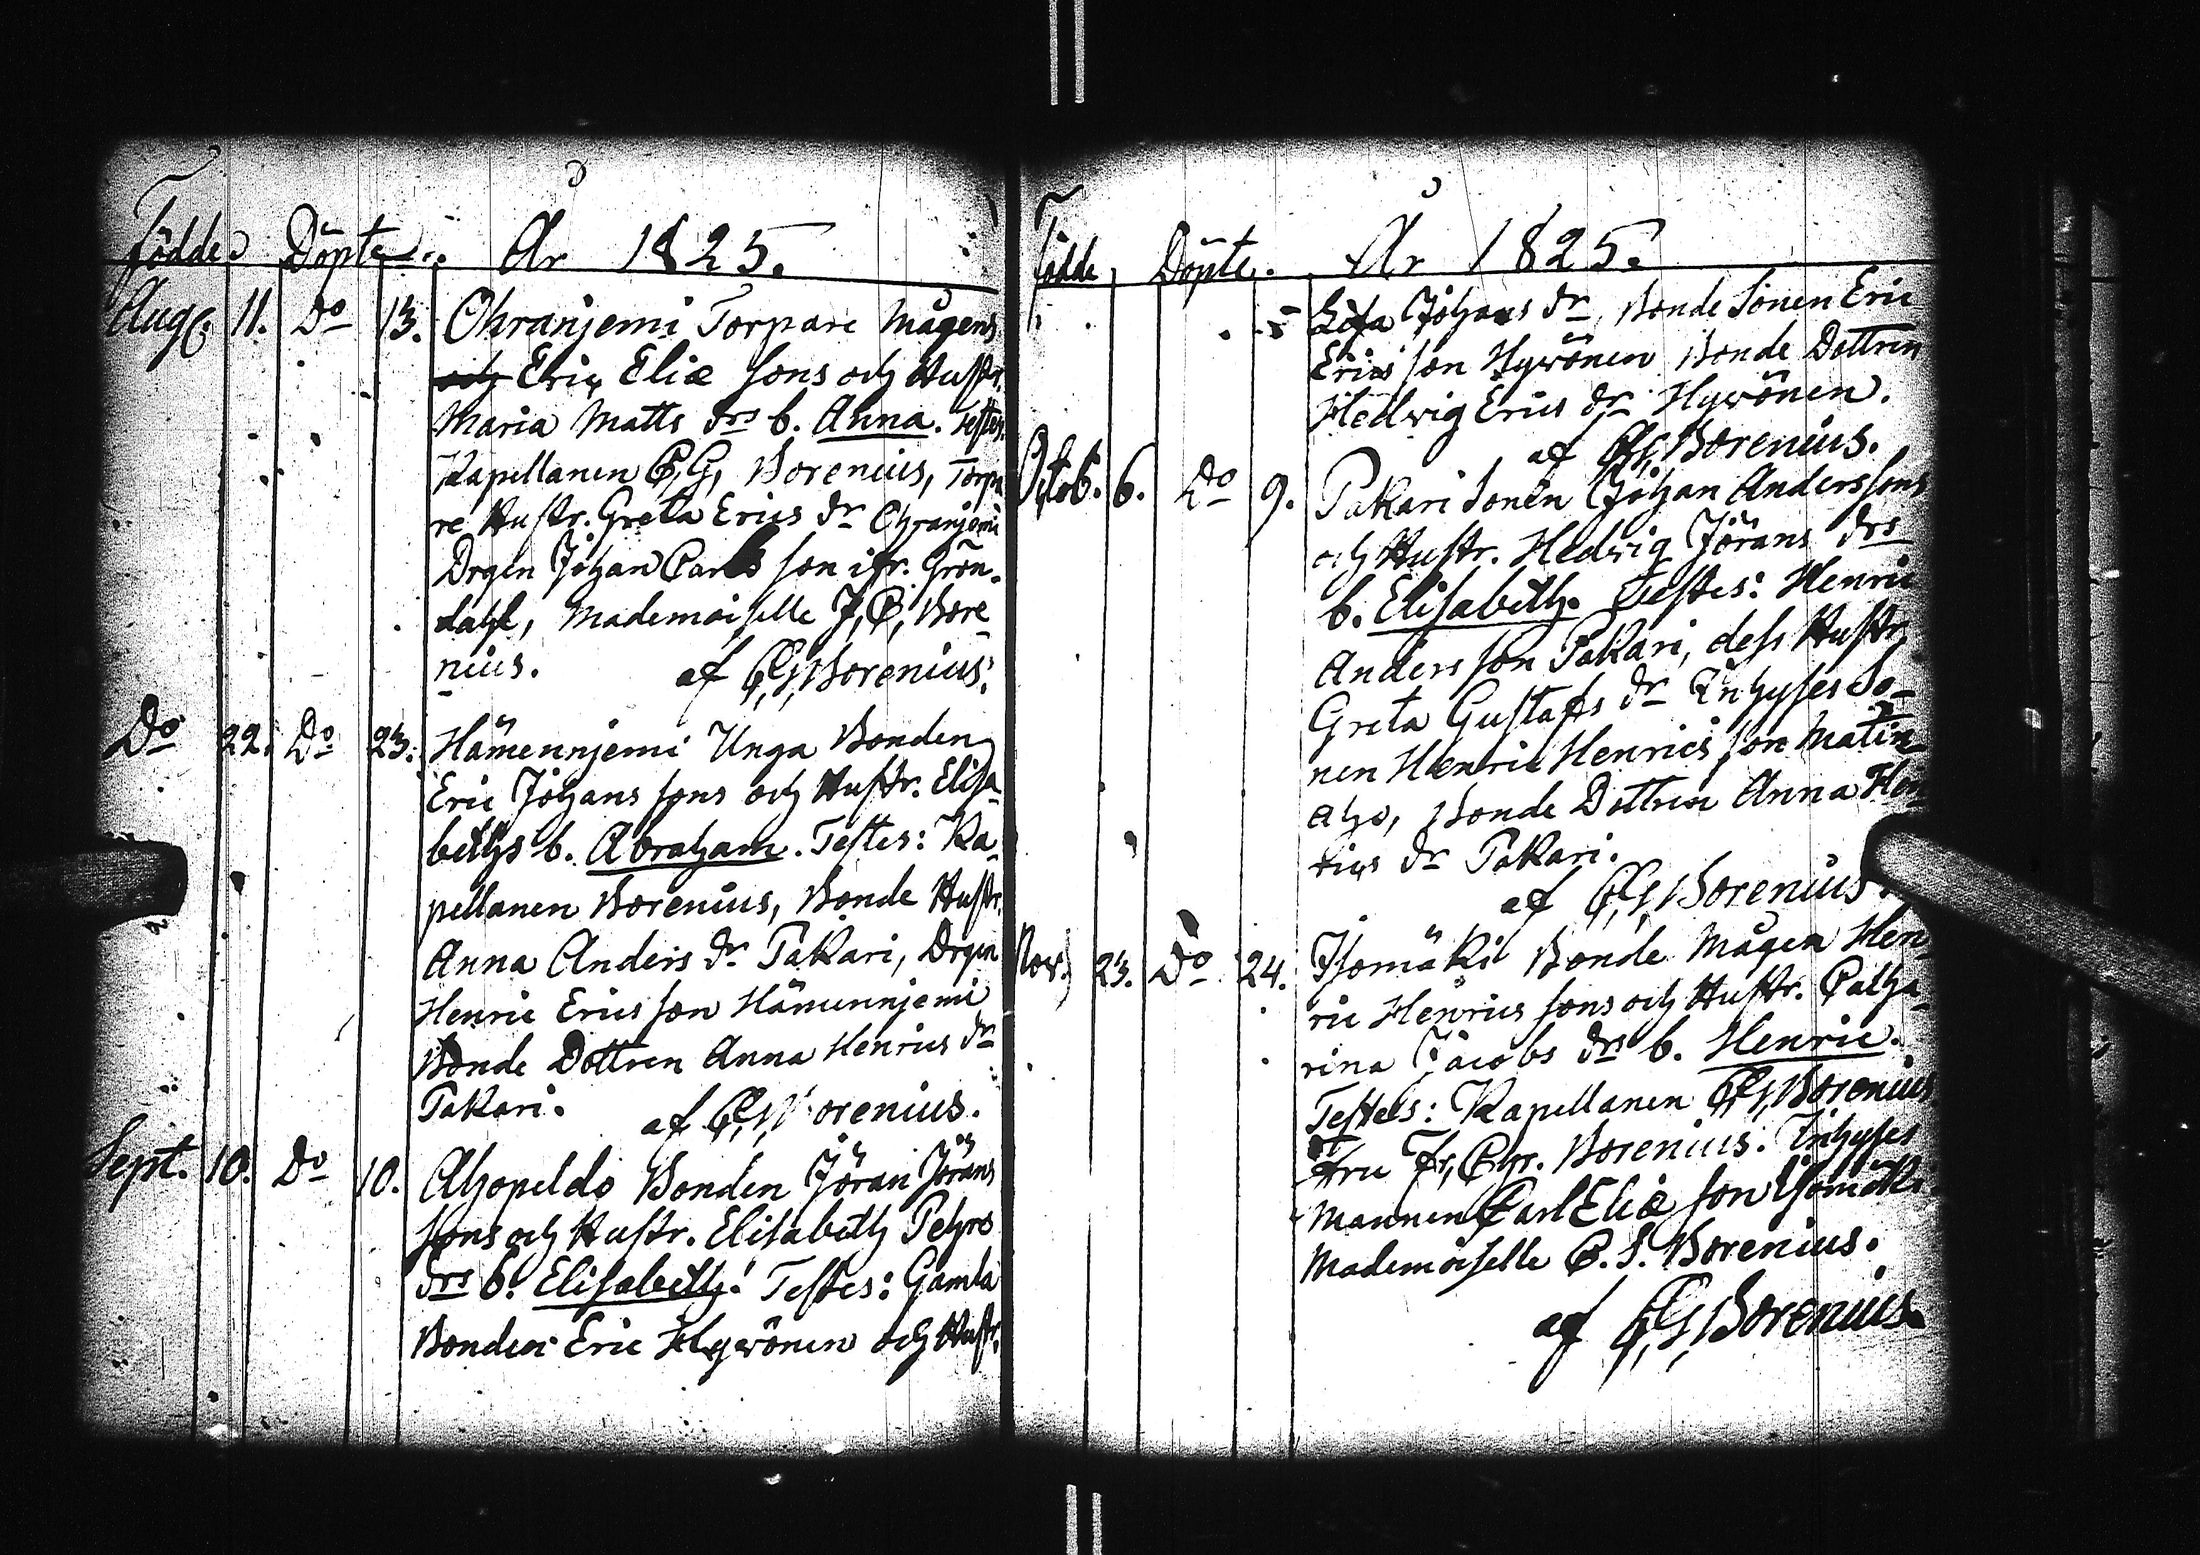 Födde Döpte. År 1825.
Aug. 11. Do 13. Ohranjemi Torpare Mågens
och Eric Eliæ sons och Hustr.
Maria Matts drs b. Anna. Testes.
Kapellanen C, G, Borenius, Torpa
re Hustr. Greta Erics dr Ohranjemi
Drgen Johan Carls son ifr. Grön-
dahl, Mademoiselle J, C, Bore
nius. af C,G,Borenius.
Do 22. Do 23. Hämennjemi Unga Bonden
Eric Johans sons och Hustr. Elisa-
beths b. Abraham. Testes: Ka-
pellanen Borenius, Bonde Hustr.
Anna Anders dr Pakari, Drgen
Henric Erics son Hämennjemi
Bonde Dottren Anna Henrics dr
Pakari. af C,G,Borenius.
Sept. 10. Do 10. Ahopeldo Bonden Jöran Jörans
sons och Hustr. Elisabeth Pehrs
drs b. Elisabeth. Testes: Gamla
Bonden Eric Hyvönen och Hustr.
Födde Döpte. År 1825.
Lisa Johans dr, Bonde Sonen Eric
Erics son Hyvönen Bonde Dottren
Hedwig Erics dr Hyvönen.
af C,G,Borenius.
Octob. 6. Do 9. Pakari Sonen Johan Anders sons
och Hustr. Hedvig Jörans drs
b. Elisabeth. Testes: Henric
Anders son Pakari, dess Hustr.
Greta Gustafs dr Inhyses So-
nen Henric Henrics son Matin
aho, Bonde Dottren Anna Hen
rics dr Pakari.
af C,G,Borenius.
Nov. 23. Do 24. Isomäki Bonde Mågen Hen
ric Henrics sons och Hustr. Catha-
rina Jacobs drs b. Henric.
Testes: Kapellanen C,G,Borenius
Fru Fr, Chr. Borenius. Inhyses
Mannen Carl Eliæ son Isomäki
Mademoiselle C. S. Borenius.
af C,G,Borenius